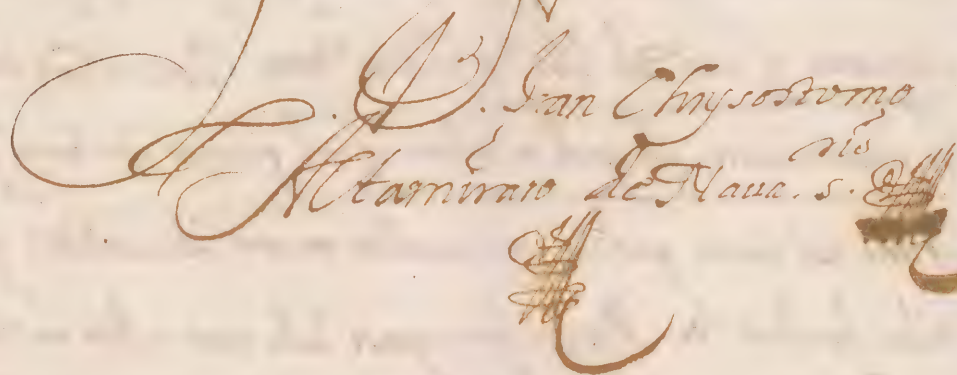 D. Iuan Chrysostomo
Altamirano de Naua. s.rio